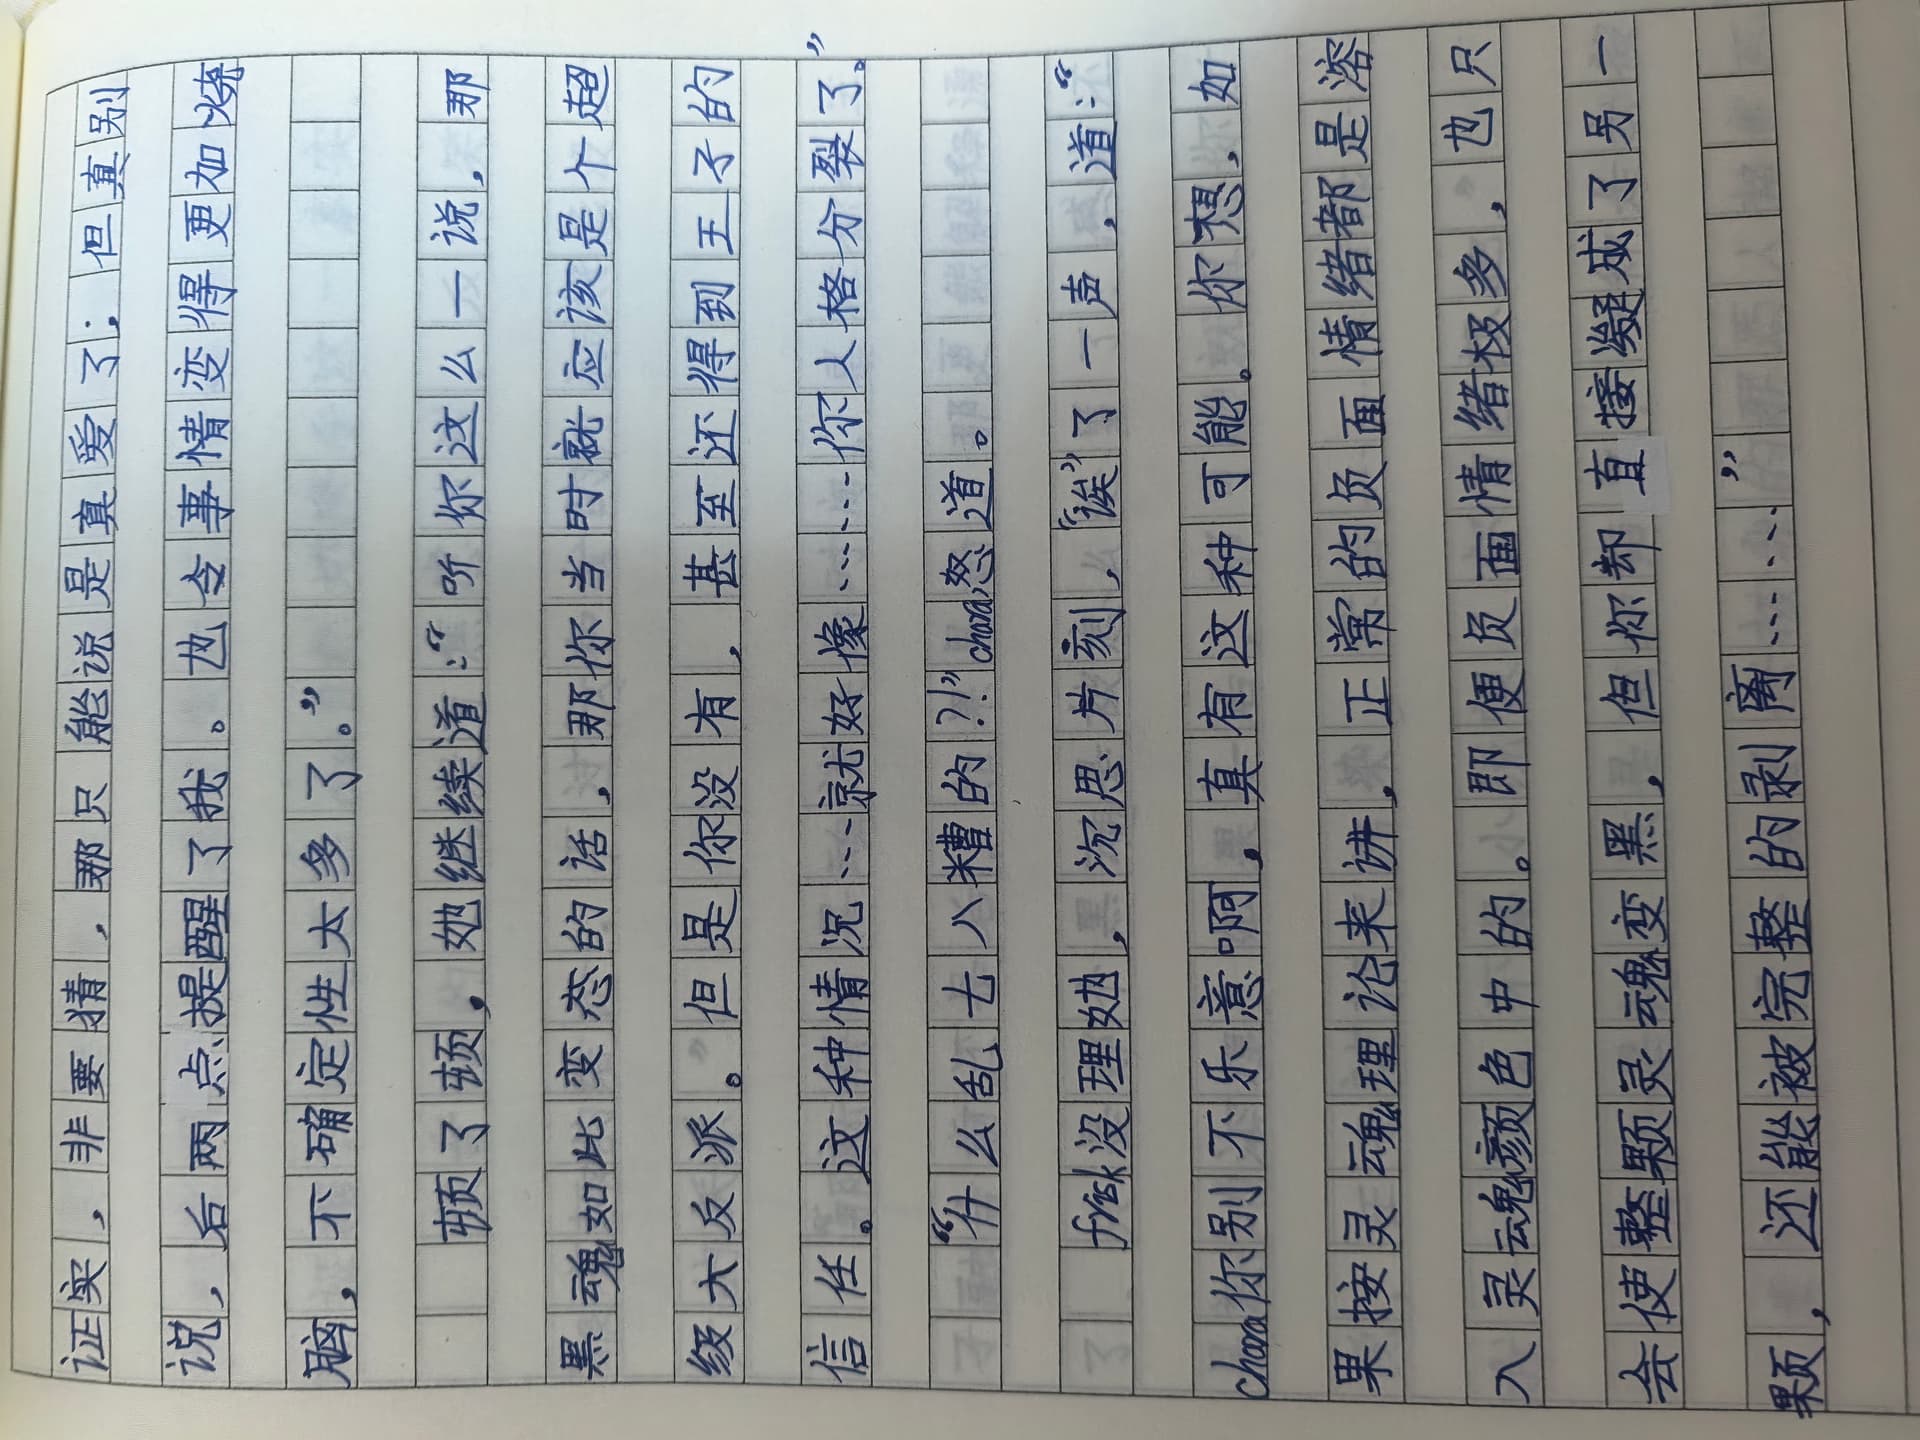 证实，非要猜，那只能说是真爱了；但真别
说，后两点提醒了我。也令事情变得更加烧
脑，不确定性太多了。”
顿了顿，她继续道：“听你这么一说，那
黑魂如此变态的话，那你当时就应该是个超
级大反派。但是你没有，甚至还得到王子的
信任。这种情况……就好像……你人格分裂了。”
“什么乱七八糟的?!”chara怒道。
frisk没理她，沉思片刻，“诶”了一声，道：“
chara你别不乐意啊，真有这种可能。你想，如
果按灵魂理论来讲，正常的负面情绪都是溶
入灵魂颜色中的。即便负面情绪极多，也只
会使整颗灵魂变黑，但你却直接凝成了另一
颗，还能被完整的剥离……”